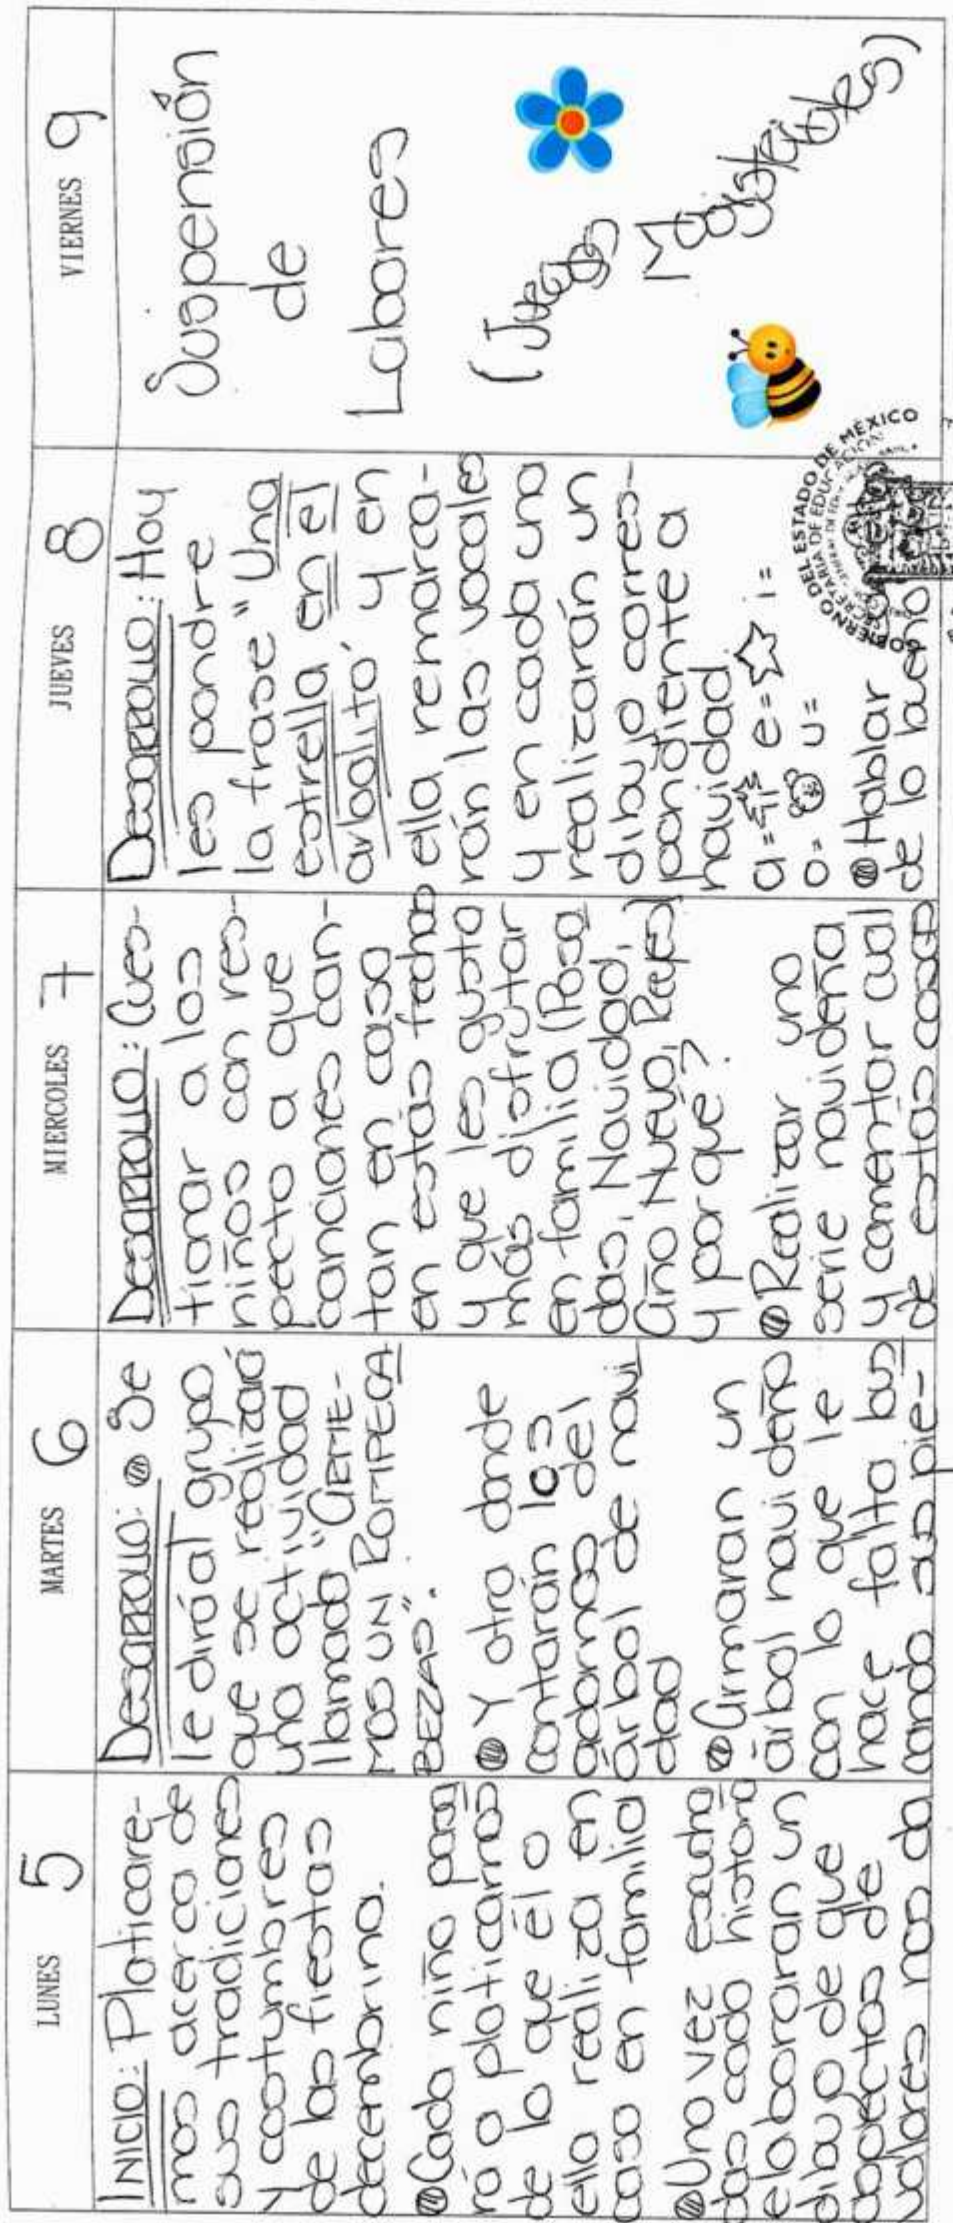 LUNES 5
INICIO: Platicare-
mos acerca de
sus tradiciones
y costumbres
de las fiestas
decembrina.
Cada niño pasa
rá a platicarnos
de lo que él o
ella realiza en
casa en familia
Una vez escucha
das cada historia
elaboraran un
dibujo de que
aspectos de
valores nos da
MARTES 6
DESARROLLO: Se
le dirá al grupo
que se realizará
una actividad
llamado "ARME-
MOS UN ROMPECA
BEZAS".
Y otra donde
contarán los
adornos del
árbol de navi
dad
Armaran un
árbol navideño
con lo que le
hace falta bus
cando sus pie-
MIERCOLES 7
DESARROLLO: Cues-
tionar a los
niños con res-
pecto a que
canciones can-
tan en casa
en estás fechas
y que les gusta
más disfrutar
en familia (Posa
das, Navidad,
Año Nuevo, Reyes)
y por qué?
Realizar una
serie navideña
y comentar cual
de estas cosas
JUEVES 8
DESARROLLO: Hoy
les pondre
la frase "Una
estrella en el
arbolito" y en
ella remarca-
rán las vocales
y en cada una
realizarán un
dibujo corres-
pondiente a
navidad.
a= e= i=
o= u=
Hablar
de lo bueno
GOBIERNO DEL ESTADO DE MÉXICO
SECRETARIA DE EDUCACIÓN
VIERNES 9
Suspensión
de
Labores
(Juegos
Magisteriales)